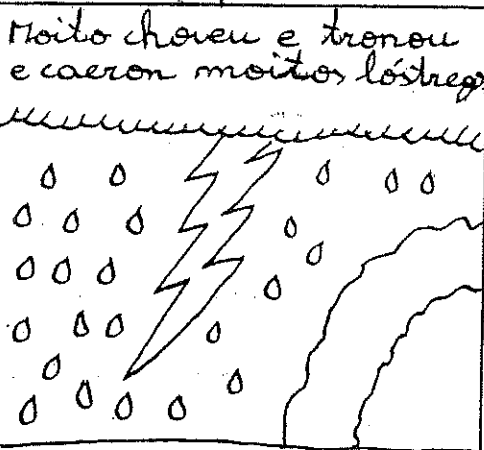 Moito choveu e tronou
e caeron moitos lóstreg